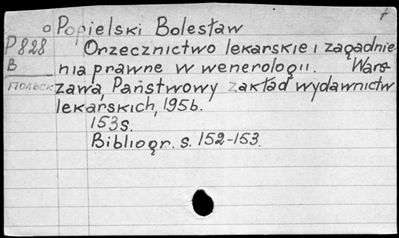 o Popielski Bolesław
P828 Orzecznictwo lekarskie i zagadnie
B nia prawne w wenerologii. War-
польск zawa, Państwowy zakład wydawnictw
lekarskich, 1956.
153 s.
Bibliogr. s. 152-153.